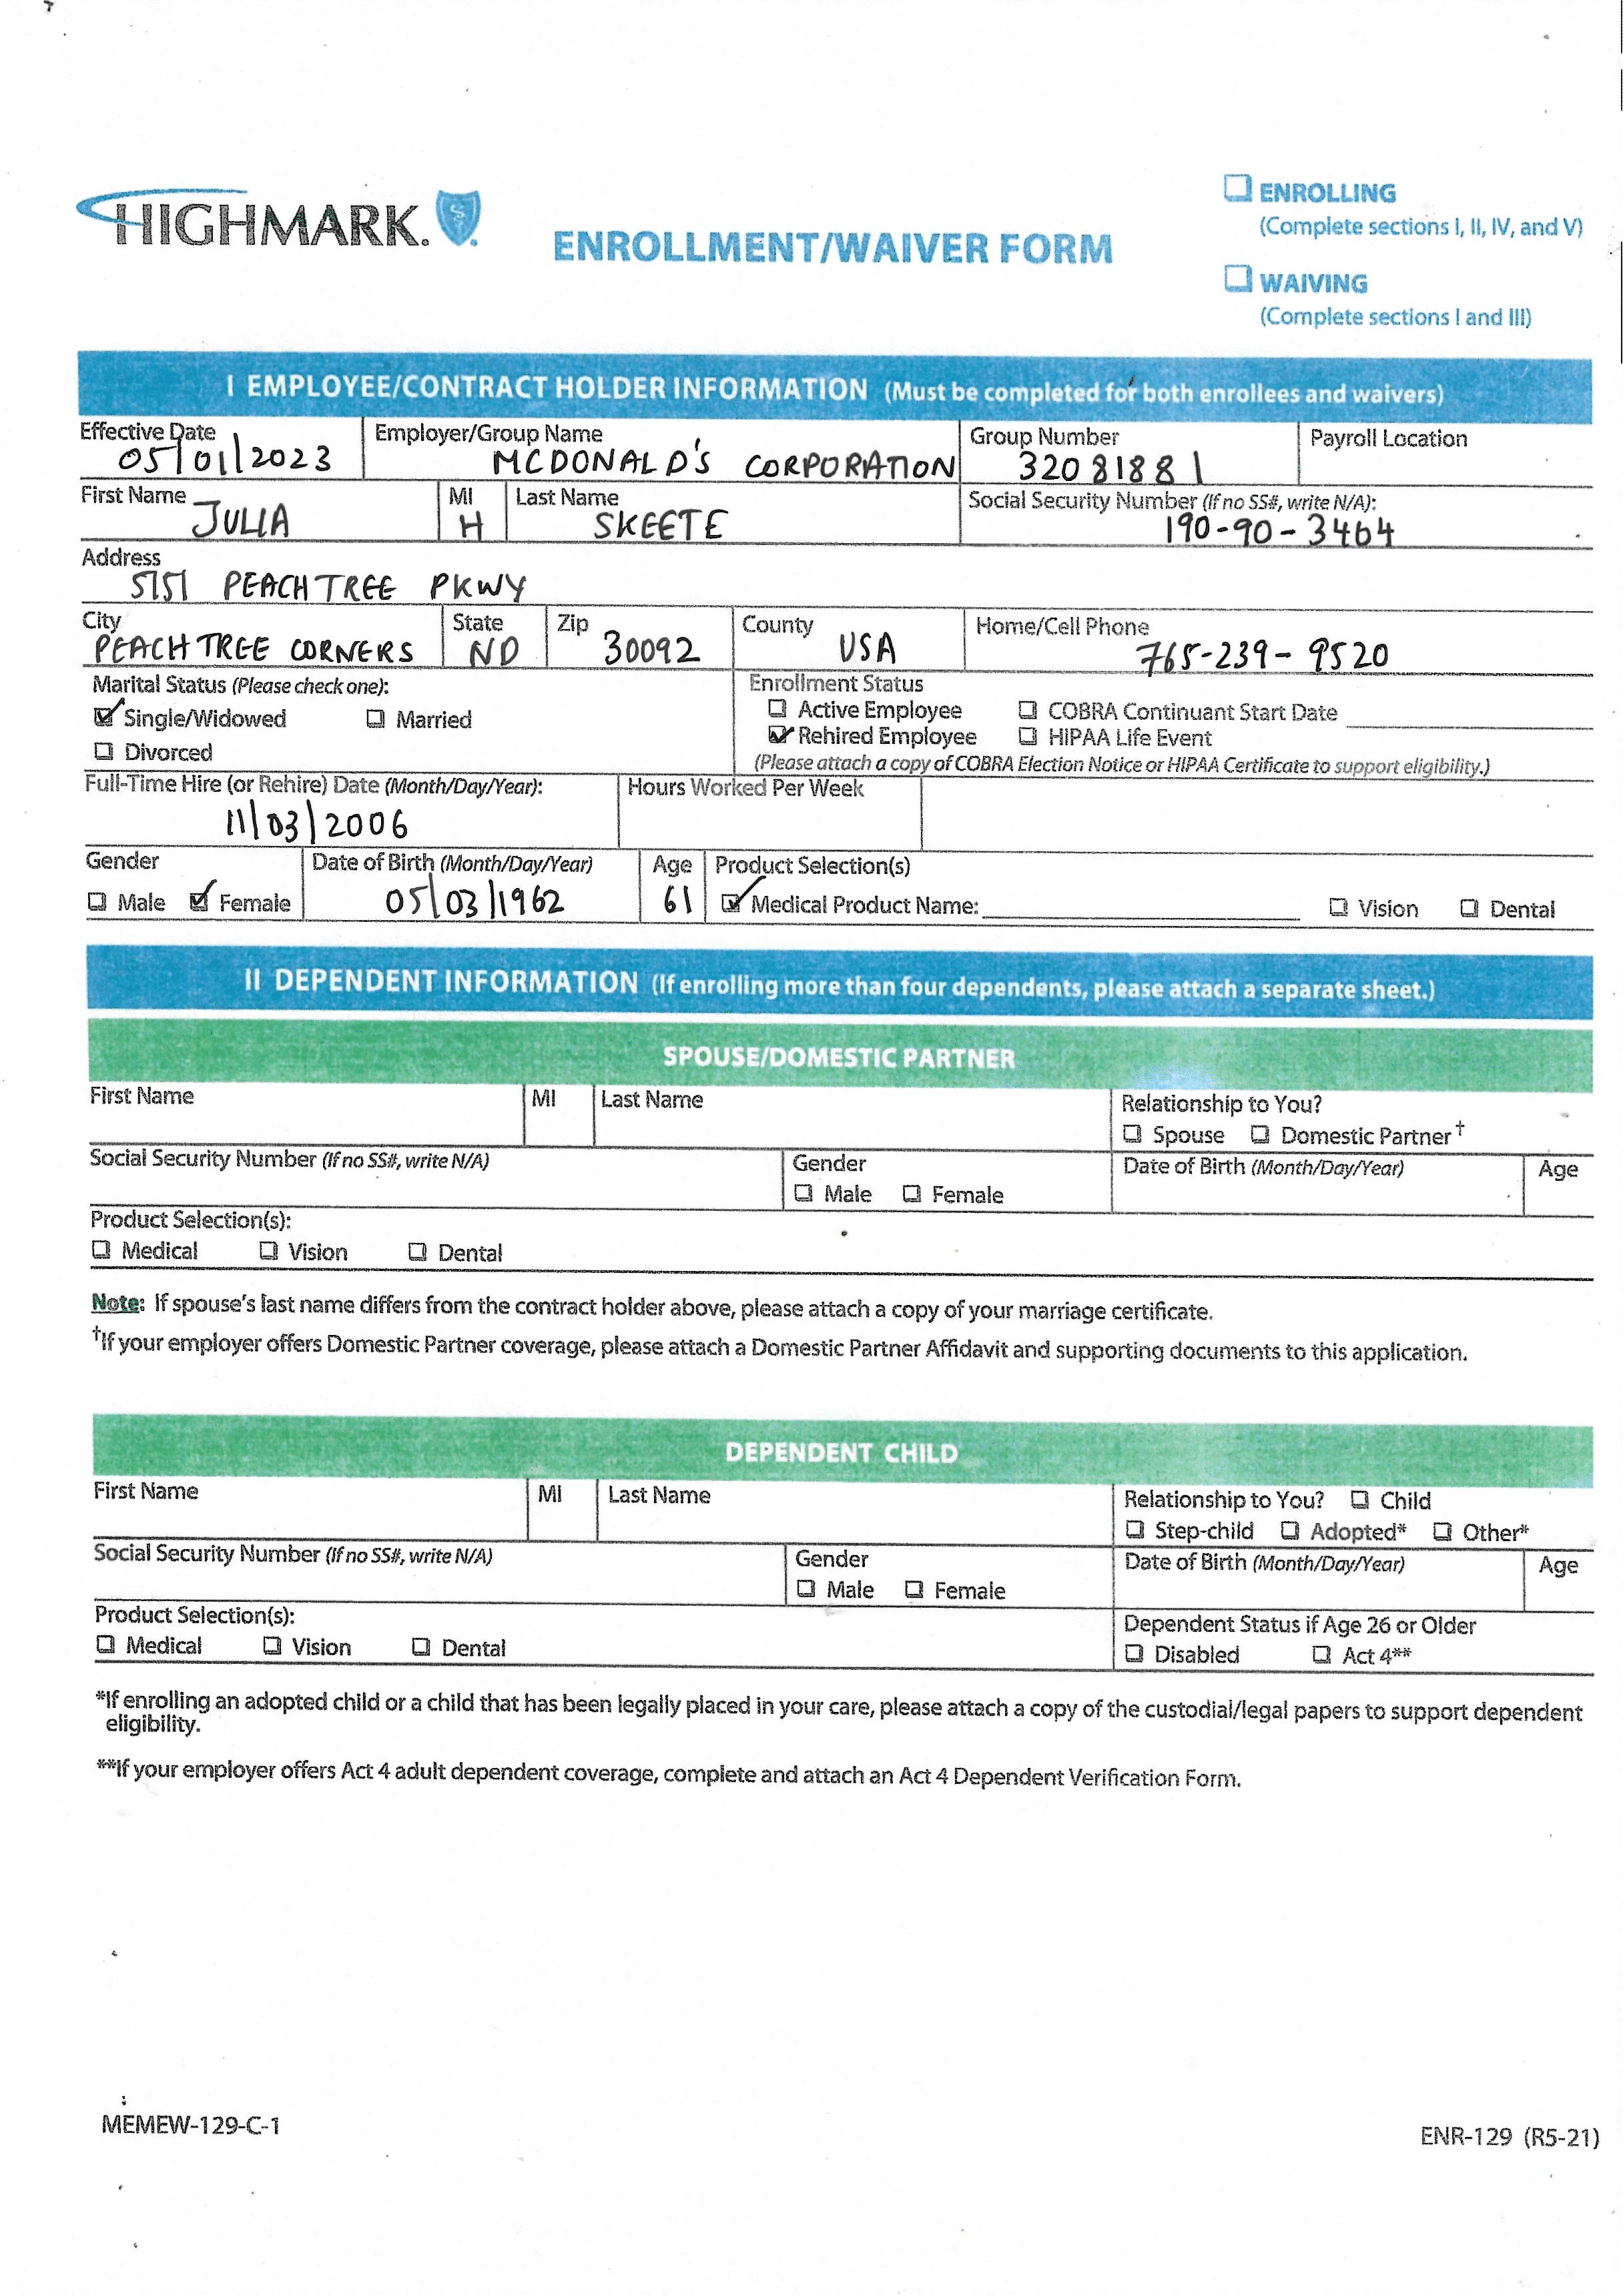 HIGHMARK.
ENROLLMENT/WAIVER FORM
ENROLLING
(Complete sections I, II, IV, and V)
WAIVING
(Complete sections I and III)
I EMPLOYEE/CONTRACT HOLDER INFORMATION (Must be completed for both enrollees and waivers)
Effective Date Employer/Group Name Group Number Payroll Location
05/01/2023 MCDONALD'S CORPORATION 32081881
First Name MI Last Name Social Security Number (If no SS#, write N/A):
JULIA H SKEETE 190-90-3464
Address
5151 PEACHTREE PKWY
City State Zip County Home/Cell Phone
PEACHTREE CORNERS ND 30092 USA 765-239-9520
Marital Status (Please check one): Enrollment Status
Single/Widowed Married Active Employee COBRA Continuant Start Date
Divorced Rehired Employee HIPAA Life Event
(Please attach a copy of COBRA Election Notice or HIPAA Certificate to support eligibility.)
Full-Time Hire (or Rehire) Date (Month/Day/Year): Hours Worked Per Week
11/03/2006
Gender Date of Birth (Month/Day/Year) Age Product Selection(s)
Male Female 05/03/1962 61 Medical Product Name: Vision Dental
II DEPENDENT INFORMATION (If enrolling more than four dependents, please attach a separate sheet.)
SPOUSE/DOMESTIC PARTNER
First Name MI Last Name Relationship to You?
Spouse Domestic Partner†
Social Security Number (If no SS#, write N/A) Gender Date of Birth (Month/Day/Year) Age
Male Female
Product Selection(s):
Medical Vision Dental
Note: If spouse's last name differs from the contract holder above, please attach a copy of your marriage certificate.
†If your employer offers Domestic Partner coverage, please attach a Domestic Partner Affidavit and supporting documents to this application.
DEPENDENT CHILD
First Name MI Last Name Relationship to You? Child
Step-child Adopted* Other*
Social Security Number (If no SS#, write N/A) Gender Date of Birth (Month/Day/Year) Age
Male Female
Product Selection(s): Dependent Status if Age 26 or Older
Medical Vision Dental Disabled Act 4**
*If enrolling an adopted child or a child that has been legally placed in your care, please attach a copy of the custodial/legal papers to support dependent
eligibility.
**If your employer offers Act 4 adult dependent coverage, complete and attach an Act 4 Dependent Verification Form.
MEMEW-129-C-1
ENR-129 (R5-21)